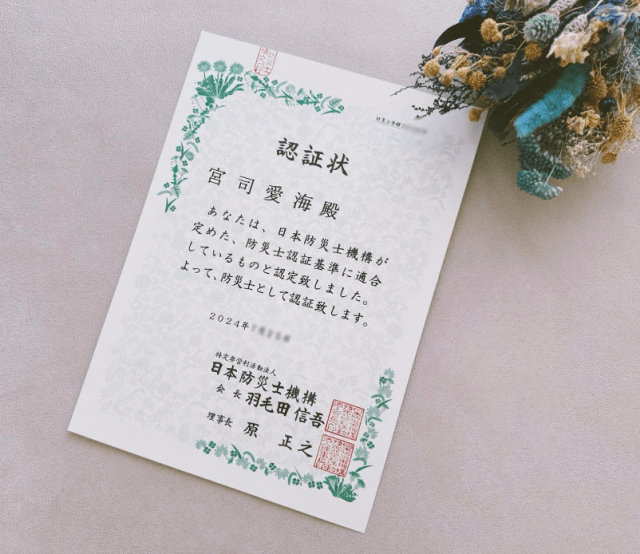 認証状
宮司愛海殿
あなたは、日本防災士機構が
定めた、防災士認証基準に適合
しているものと認定致しました。
よって、防災士として認証致します。
2024年
特定非営利活動法人
日本防災士機構
会長 羽毛田信吾
理事長 原 正之